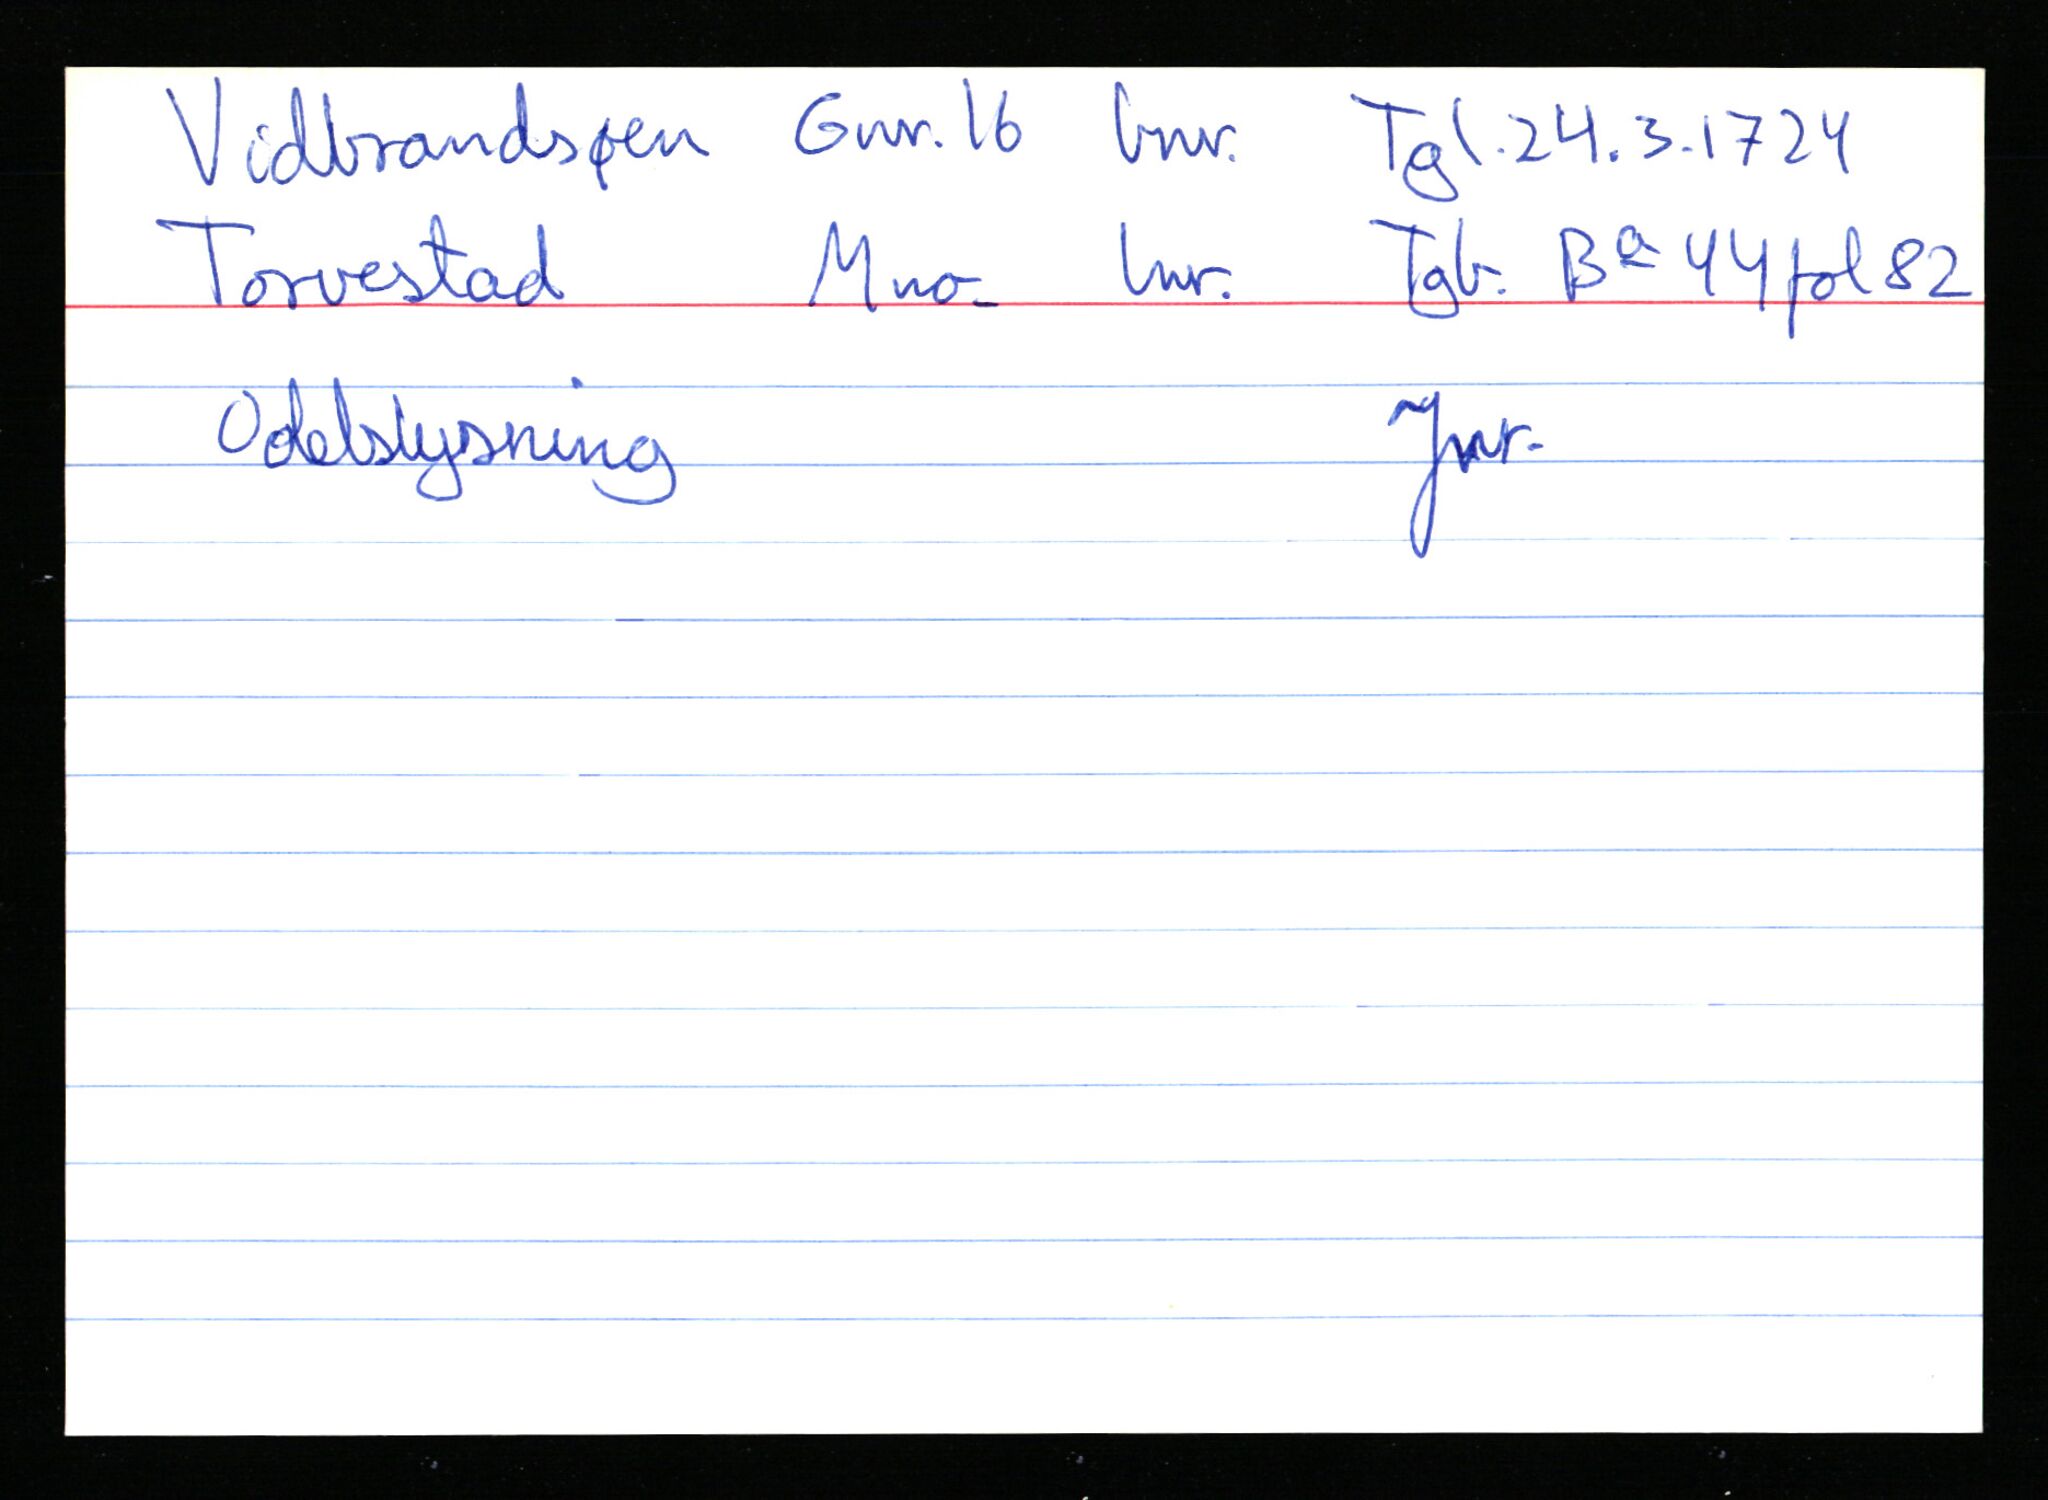 Vidbrandsøen Gnr. 16 bnr. Tgl. 24.3.1724
Torvestad Mno- lnr. Tgb. Ba 44 fol 82
Odelslysning Jnr.